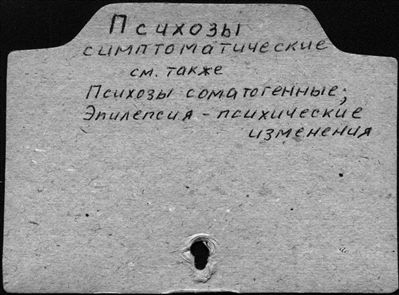 Психозы
симптоматические
см. также
Психозы соматогенные;
Эпилепсия - психические
изменения